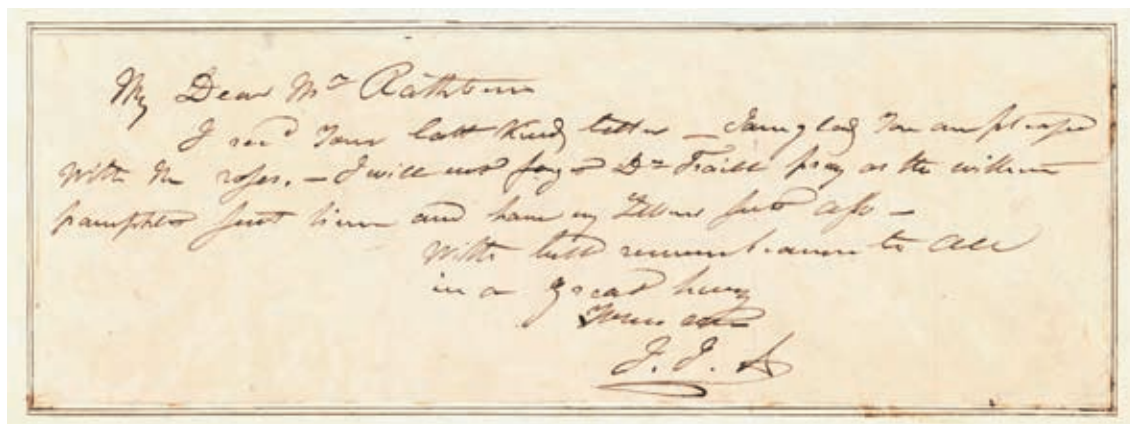 My Dear Mr Rathbone
I recd Your last Kind letter — I am glad You are pleased
With the roses. — I will not forget Dr Traill pray as the within
pamphlet sent him and have my letters sent also —
With best remembrances to all
in a great hurry
Yours
J. J. A